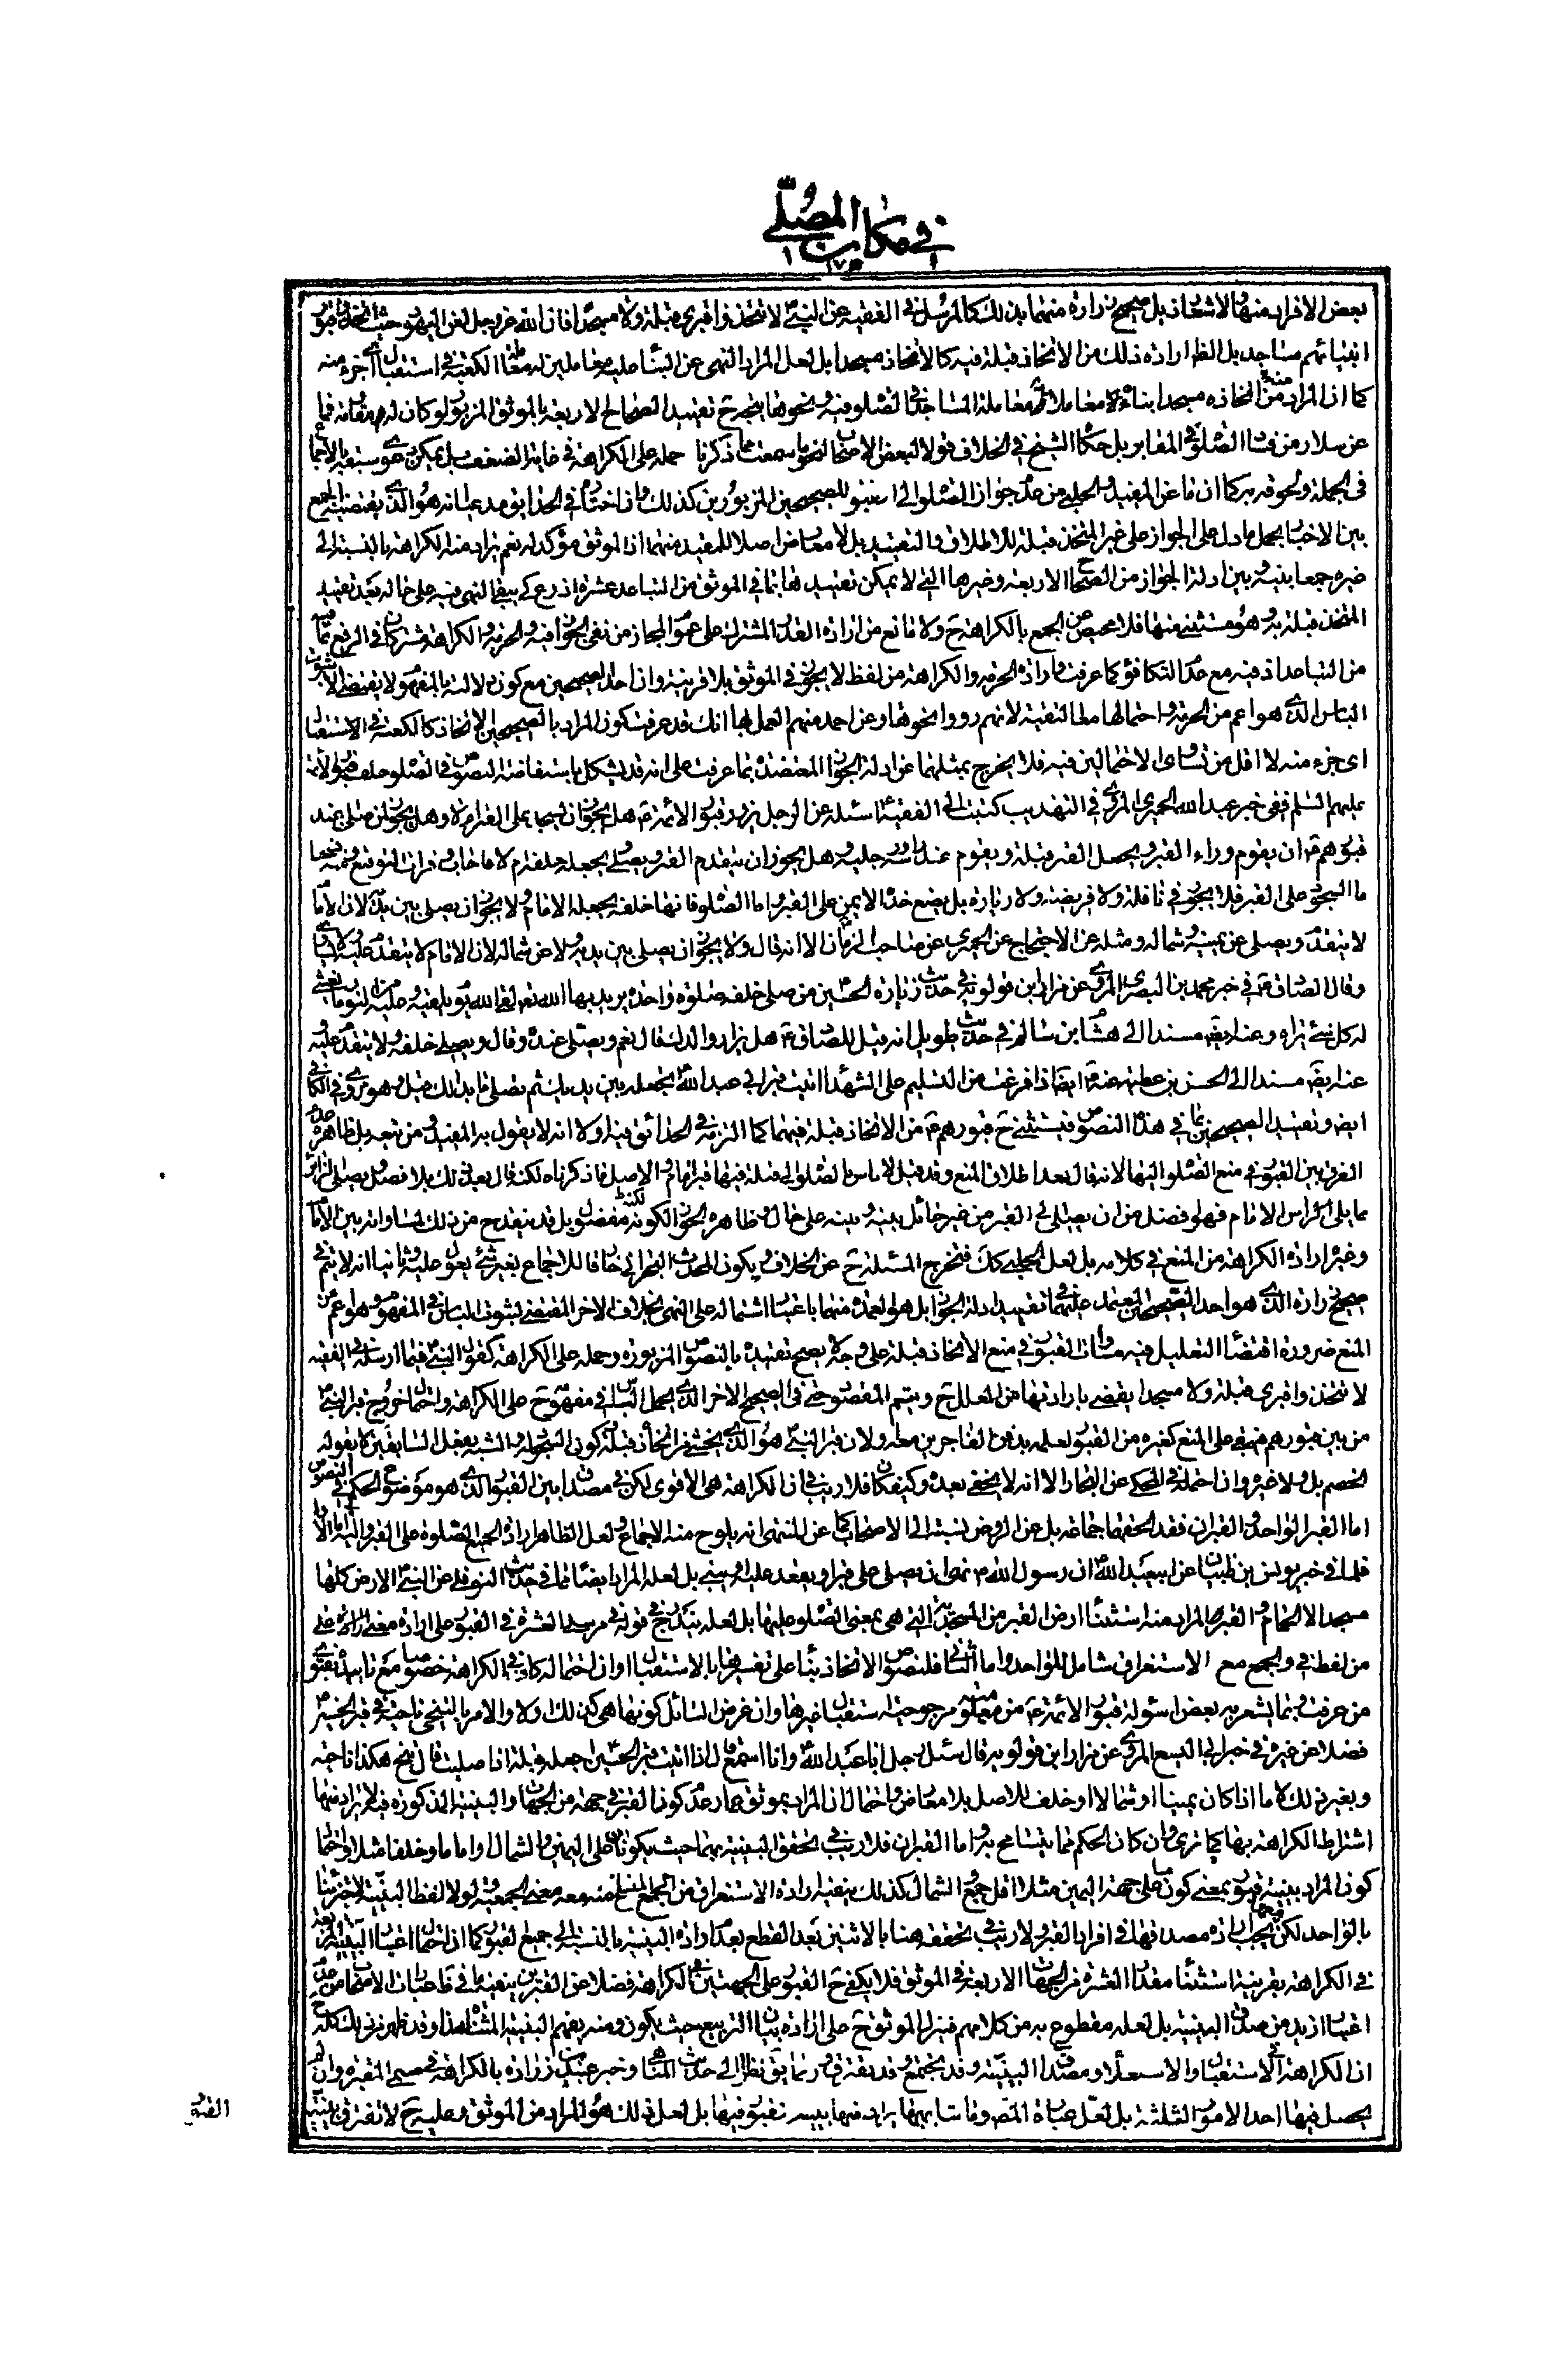 في مكان المصلي
١٧٥
بعض الافراد منها والاشعار بل صحيح زرارة منهما بذلك كالمرسل في الفقيه عن النبي لا تتخذوا قبري قبلة ولا مسجدا فان الله عز وجل لعن اليهود حيث اتخذوا قبور
انبيائهم مساجد بل الظ ارادة ذلك من الاتخاذ قبلة فيه كالاتخاذ مسجدا بل لعل المراد النهي عن البناء عليه معاملين له معاملة الكعبة في استقبال اي جزء منه
كما ان المراد من اتخاذه مسجدا بناء معاملا له معاملة المساجد في الصلوة فيه ونحوها فيتجه ح تقييد الصحاح الاربعة بالموثق المزبور لو كان له مقاومة فما
عن سلار من فساد الصلوة في المقابر بل حكاه الشيخ في الخلاف قولا لبعض الاصحاب لنحو ما سمعت مما ذكرنا حمله على الكراهة في غاية الضعف بل يمكن دعوى سبقه بالاجماع
في الجملة ولحوقه به كما ان ما عن المفيد والحلبي من عدم جواز الصلوة الى القبور للصحيحين المزبورين كذلك وان اختاره في الحدائق مدعيا انه هو الذي يقتضيه الجمع
بين الاخبار بحمل ما دل على الجواز على غير المتخذ قبلة للاطلاق والتقييد بل لا معارض اصلا للمقيد منهما اذ الموثق مؤكد له نعم يراد منه الكراهة بالنسبة الى
غيره جمعا بينه وبين ادلة الجواز من الصحاح الاربعة وغيرها التي لا يمكن تقييدها بما في الموثق من التباعد عشرة اذرع كي يبقى النهي فيه على حاله بعد تقييد
المتخذ قبلة به وهو مستثنى منها فلا محيص عن الجمع بالكراهة ح ولا مانع من ارادة القدر المشترك على عموم المجاز من نفي الجواز فيه والحرمة والكراهة مشتركان في الرفع بما فيه
من التباعد اذ فيه مع عدم التكافؤ كما عرفت وارادة الحرمة والكراهة من لفظ لا يجوز في الموثق بلا قرينة وان احد الصحيحين مع كون دلالته بالمفهوم لا يقتضي الا ثبوت
الباس الذي هو اعم من الحرمة واحتمالها معا التقية لانهم رووا نحوها وعن احمد منهم العمل بها انك قد عرفت كون المراد بالصحيحين الاتخاذ كالكعبة في الاستقبال
اي جزء منه لا اقل من تساوي الاحتمالين فيه فلا يخرج بمثلهما عن ادلة الجواز المعتضدة بما عرفت على انه قد يشكل باستفاضة النصوص في الصلوة خلف قبور الائمة
عليهم السلم ففي خبر عبد الله الحميري المروي في التهذيب كتبت الى الفقيه اسئله عن الرجل يزور قبور الائمة ع هل يجوز ان يسجد على القبر ام لا وهل يجوز لمن صلى عند
قبورهم ع ان يقوم وراء القبر ويجعل القبر قبلة ويقوم عند راسه ورجليه وهل يجوز ان يتقدم القبر ويصلي ويجعله خلفه ام لا فاجاب وقرات التوقيع ومنه نسخت
اما السجود على القبر فلا يجوز في نافلة ولا فريضة ولا زيارة بل يضع خده الايمن على القبر واما الصلوة فانها خلفه يجعله الامام ولا يجوز ان يصلي بين يديه لان الامام
لا يتقدم ويصلي عن يمينه وشماله ومثله عن الاحتجاج عن الحميري عن صاحب الزمان الا انه قال ولا يجوز ان يصلي بين يديه ولا عن شماله لان الامام لا يتقدم عليه ولا يساوى
وقال الصادق ع في خبر محمد بن البصري المروي عن مزار ابن قولويه في حديث زيارة الحسين من صلى خلفه صلوة واحدة يريد بها الله تعالى لقي الله يوم يلقاه وعليه من النور ما يغشى
له كل شئ يراه وعنه ايضا مسندا الى هشام بن سالم في حديث طويل انه قيل للصادق ع هل يزار والدك قال نعم ويصلي عنده وقال ويصلي خلفه ولا يتقدم عليه
عنه ايضا مسندا الى الحسن بن عطية عنه ع ايضا اذا فرغت من التسليم على الشهداء اتيت قبر ابي عبد الله تجعله بين يديك ثم تصلي ما بدا لك وهو مروي في الكافي
ايضا وتقييد الصحيحين بما في هذه النصوص فيستثنى ح قبورهم ع من الاتخاذ قبلة فيهما كما التزمه في الحدائق فيه اولا انه لا يقول به المفيد ومن تبعه بل ظاهره عدم
الفرق بين القبور في منع الصلوة اليها لانه قال بعد اطلاق المنع وقد قيل لا باس بالصلوة الى قبلة فيها قبر امام والاصل ما ذكرناه لكنه قال بعد ذلك بلا فصل ويصلي الزائر
مما يلي راس الامام فهو افضل من ان يصلي الى القبر من غير حائل بينه وبينه على حال وظاهره الجواز لكنه مفضول بل قد ينقدح من ذلك المساواة بين الامام
وغيره وارادة الكراهة من المنع في كلامه بل لعل الحلبي كك فتخرج المسئلة ح عن الخلاف ويكون المحدث البحراني خارقا للاجماع بغير شئ يعول عليه وثانيا انه لا يتم في
صحيح زرارة الذي هو احد الصحيحين المعتمد عليهما في تقييد ادلة الجواز بل هو العمدة منهما باعتبار اشتماله على النهي بخلاف الاخر المقتضي لثبوت الباس في المفهوم وهو اعم من
المنع ضرورة اقتضاء التعليل فيه مساواة القبور في منع الاتخاذ قبلة على وجه لا يصح تقييده بالنصوص المزبورة وحمله على الكراهة كقول النبي ص فيما ارسله في الفقيه
لا تتخذوا قبري قبلة ولا مسجدا يقضي بارادتها من المعلل ح ويتم المقصود حتى في الصحيح الاخر الذي يحمل الباس في مفهومه ح على الكراهة واحتمال خروج قبر النبي ص
من بين قبورهم فيبقى على المنع كغيره من القبور لعله بدفن الفاجرين معه ولان قبر النبي ص هو الذي يخشى من اتخاذه قبلة كون السجود له والشبه بفعل السابقين كما يقوله
الخصم بل ولا غيره وان احتمله في المحكي عن البحار الا انه لا يخفى بعده وكيف كان فلا ريب في ان الكراهة هي الاقوى لكن في مصداق بين القبور الذي هو موضوع الحكم في النصوص
اما القبر الواحد والقبران فقد الحقهما جماعة بل عن الروض نسبته الى الاصحاب كما عن المنتهى انه يلوح منه الاجماع ولعل الظاهر ارادة الجميع الصلوة على القبر واليه اما الاول
فلما في خبر يونس بن ظبيان عن ابي عبد الله ان رسول الله ص نهى ان يصلى على قبر او يقعد عليه او يبنى بل لعله المراد ايضا مما في حديث النوفلي عن النبي ص الارض كلها
مسجد الا الحمام والقبر اذ المراد منه استثناء ارض القبر من المسجدية التي هي بمعنى الصلوة عليها بل لعله يندرج في قوله في مرسل العشرة في القبور على ارادة معنى
من لفظ في والجمع مع الاستغراق شامل للواحد واما الثاني فلنصوص الاتخاذ بناء على تفسيرها بالاستقبال وان احتماله كاف في الكراهة خصوصا مع تاييده بفتوى
من عرفت وبما يشعر به بعض اسئولة قبور الائمة ع من معلومية مرجوحية استقبال غيرها وان غرض السائل كونها هي كذلك ولا والامر بالتنحي ناحية في قبر الحسين
فضلا عن غيره في خبر ابي اليسع المروي عن مزار ابن قولويه قال سئل رجل ابا عبد الله وانا اسمع قال اذا اتيت قبر الحسين اجعله قبلة اذا صليت قال تنح هكذا ناحية
وبغير ذلك اما اذا كان يمينا او شمالا او خلف فالاصل بلا معارض واحتمال ان المراد بموثق عمار عدم كون القبر في جهة من الجهات والبينية المذكورة فيه لا يراد منها
اشتراط الكراهة بها كما ترى وان كان الحكم مما يتسامح به واما القبران فلا ريب في تحقق البينية بهما حيث يكونان على اليمين والشمال واماما وخلفا مثلا واحتمال
كون المراد ببينية قبور بمعنى كون على جهة اليمين مثلا اقل جمع والشمال كذلك ينفيه ارادة الاستغراق من الجمع المنسلخ منه معه معنى الجمعية ولولا لفظ البينية لاجتزئنا
بالواحد لكن يجب لاداة مصداقها في افراد القبر ولا ريب في تحققه هنا بالاثنين بعد القطع بعدم ارادة البينية بالنسبة الى جميع القبور كما ان احتمال اعتبار البينية
في الكراهة بقرينة استثناء مقدار العشرة من الجهات الاربعة في الموثق فلا يكفي ح القبور على الجهتين في الكراهة فضلا عن القبرين ينفيه ما في صاحبات الامتعة من عدم
اعتبار ازيد من صدق البينية بل لعله مقطوع به من كلامهم فينزل الموثق ح على ارادة بيان التربيع حيث يكون ومنه يفهم البينية المثناة هذا وقد ظهر من ذلك كله
ان الكراهة في الاستقبال والاستعلاء ومصداق البينية وقد يجتمع وقد يفترق وربما يق نظرا الى حديث المناهي وخبر عبيد بن زرارة بالكراهة في مسمى المقبرة وان لم
يحصل فيها احد الامور الثلثة بل لعل عبارة المص وما شابهها يراد منها بيسير تقبر فيها بل لعل ذلك هو المراد من الموثق وعليه ح لا تفترق بينه
القبور